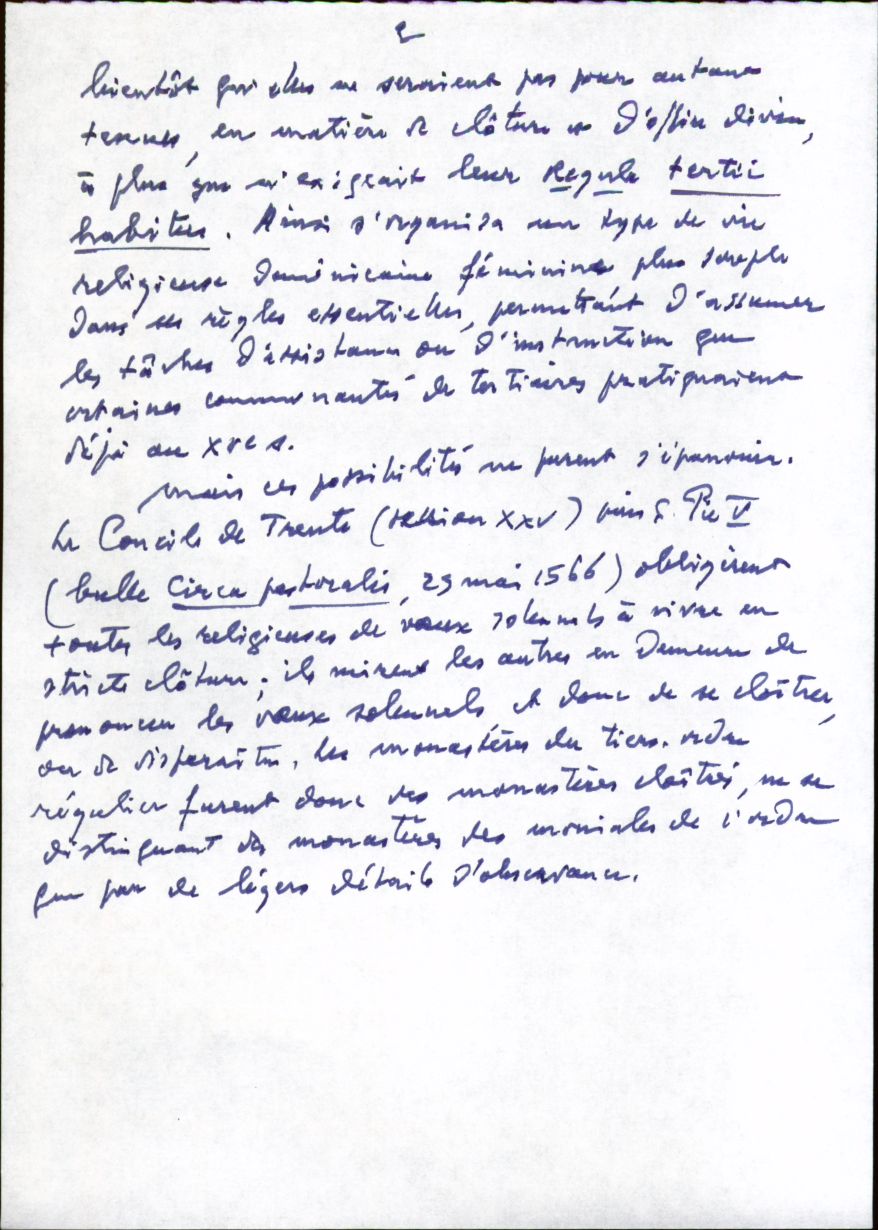 2
bientôt qu'elles ne seraient pas pour autant
tenues, en matière de clôture et d'office divin,
à plus que n'exigeait leur Regula tertii
habitus. Ainsi s'organisa un type de vie
religieuse dominicaine féminine plus souple
dans ses règles essentielles, permettant d'assumer
les tâches d'assistance ou d'instruction que
certaines communautés de tertiaires pratiquaient
déjà au XVe s.
Mais ces possibilités ne purent s'épanouir.
Le Concile de Trente (session XXV) puis S. Pie V
(bulle Circa pastoralis, 29 mai 1566) obligèrent
toutes les religieuses de vœux solennels à vivre en
stricte clôture ; ils mirent les autres en demeure de
prononcer les vœux solennels, et donc de se cloîtrer,
ou de disparaître. Les monastères du tiers-ordre
régulier furent donc des monastères cloîtrés, ne se
distinguant des monastères des moniales de l'ordre
que par de légers détails d'observance.